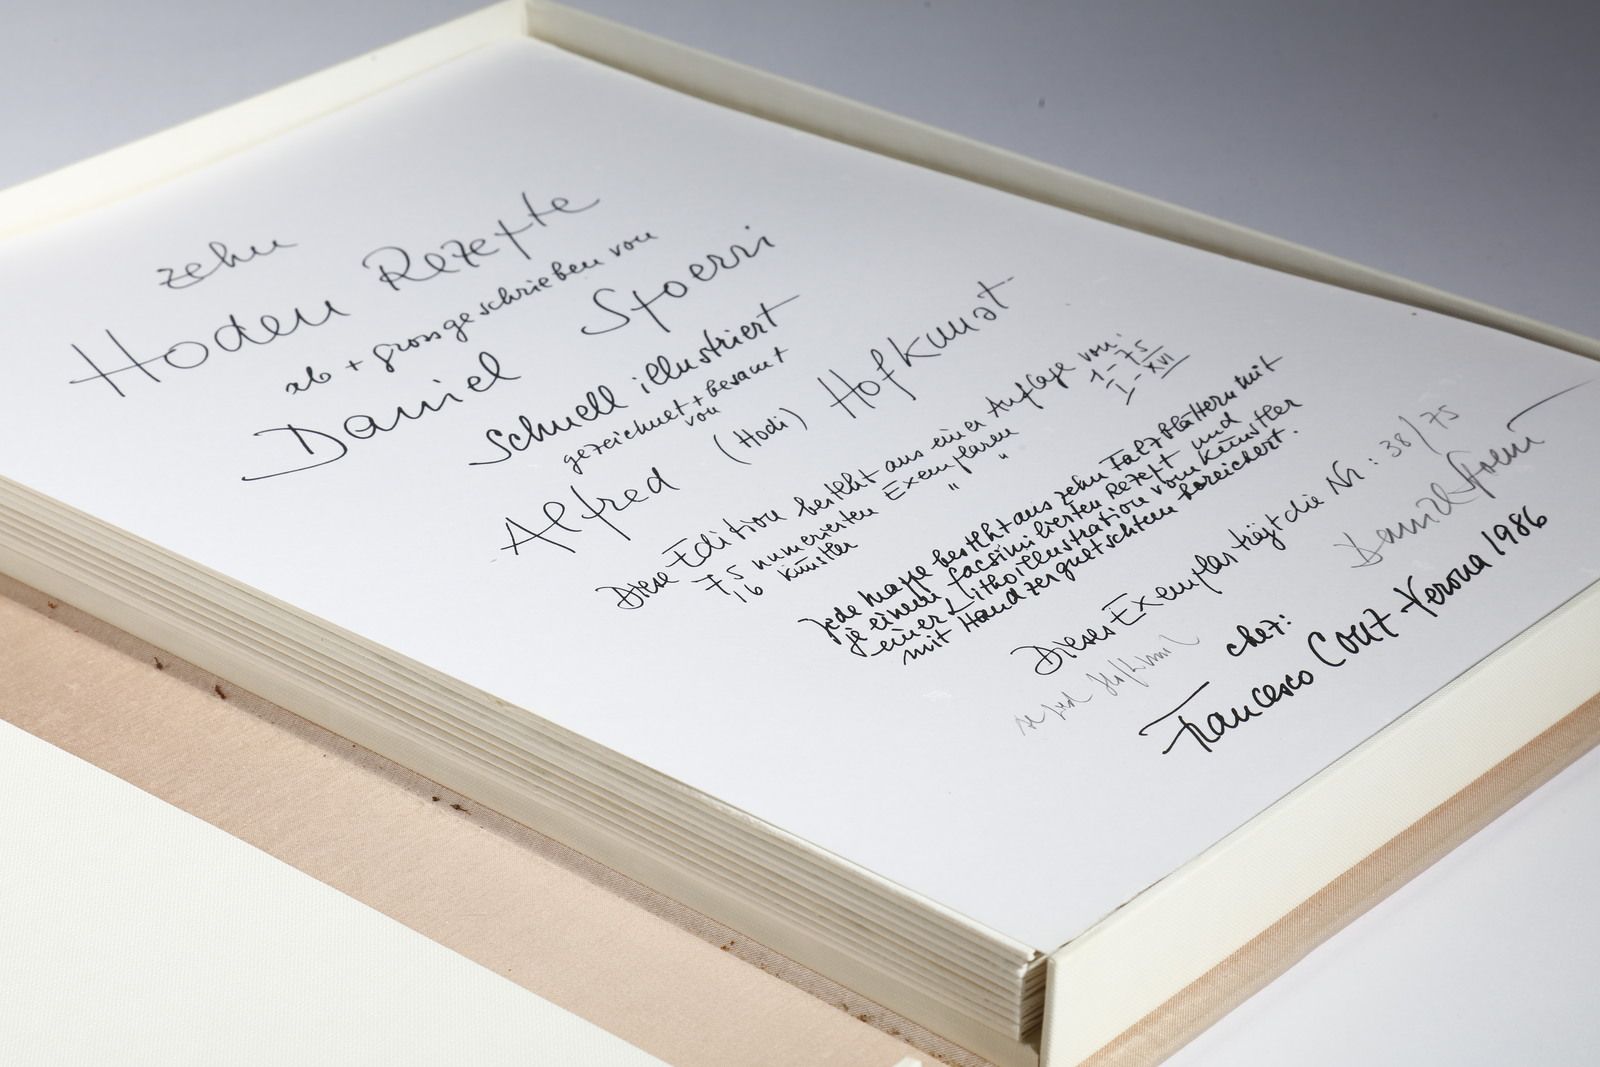 zehn
Hoden Rezepte
ab + grossgeschrieben von
Daniel Spoerri
Schnell illustriert
gezeichnet + besamt
von
Alfred (Hodi) Hofkunst
Diese Edition besteht aus einer Auflage von:
75 numerierten Exemplaren 1-75
16 Künstler " " I-XVI
Jede Mappe besteht aus zehn Falzblättern mit
je einem facsimilierten Rezept und
einer Lithoillustration vom Künstler
mit Hand zerquetschtem bereichert.
Dieses Exemplar trägt die Nr: 38/75
Daniel Spoerri
chez:
Francesco Conz - Verona 1986